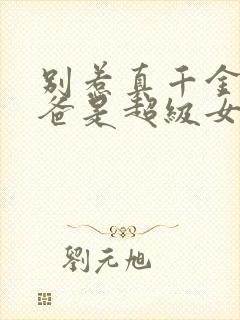 別惹真千金
爸是超級女
劉元旭